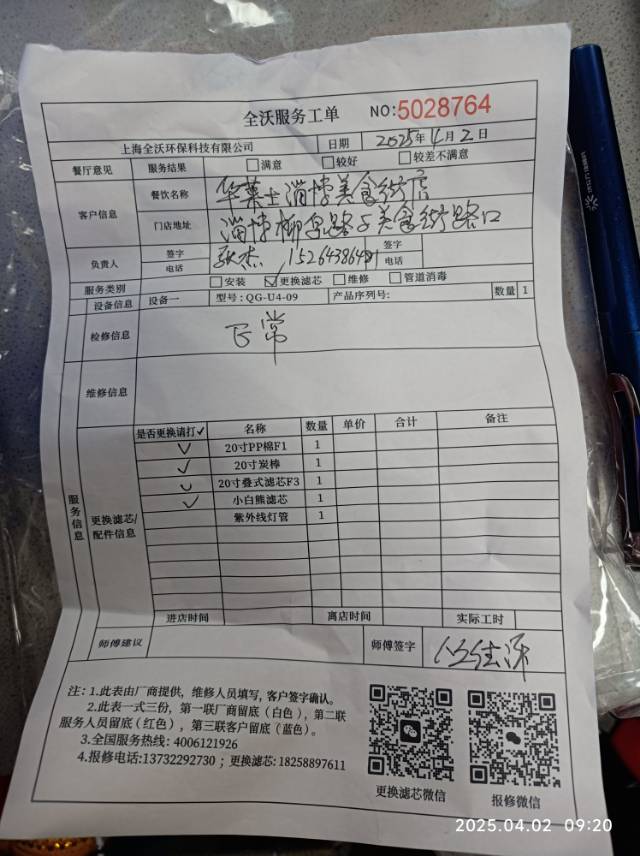 全沃服务工单 NO:5028764
上海全沃环保科技有限公司 日期 2025年4月2日
餐厅意见 服务结果 满意 较好 较差不满意
客户信息 餐饮名称 华莱士淄博美食街店
门店地址 淄博柳泉路与美食街路口
负责人 签字 张杰 签字
电话 电话
服务类别 安装 更换滤芯 维修 管道消毒
设备信息 设备一 型号:QG-U4-09 产品序列号: 数量 1
检修信息 正常
维修信息
服务信息 更换滤芯/配件信息
是否更换请打✓ 名称 数量 单价 合计 备注
✓ 20寸PP棉F1 1
✓ 20寸炭棒 1
✓ 20寸叠式滤芯F3 1
✓ 小白熊滤芯 1
紫外线灯管 1
进店时间 离店时间 实际工时
师傅建议 师傅签字
注:1.此表由厂商提供,维修人员填写,客户签字确认。
2.此表一式三份,第一联厂商留底(白色),第二联
服务人员留底(红色),第三联客户留底(蓝色)。
3.全国服务热线:4006121926
4.报修电话:13732292730;更换滤芯:18258897611
更换滤芯微信 报修微信
2025.04.02 09:20